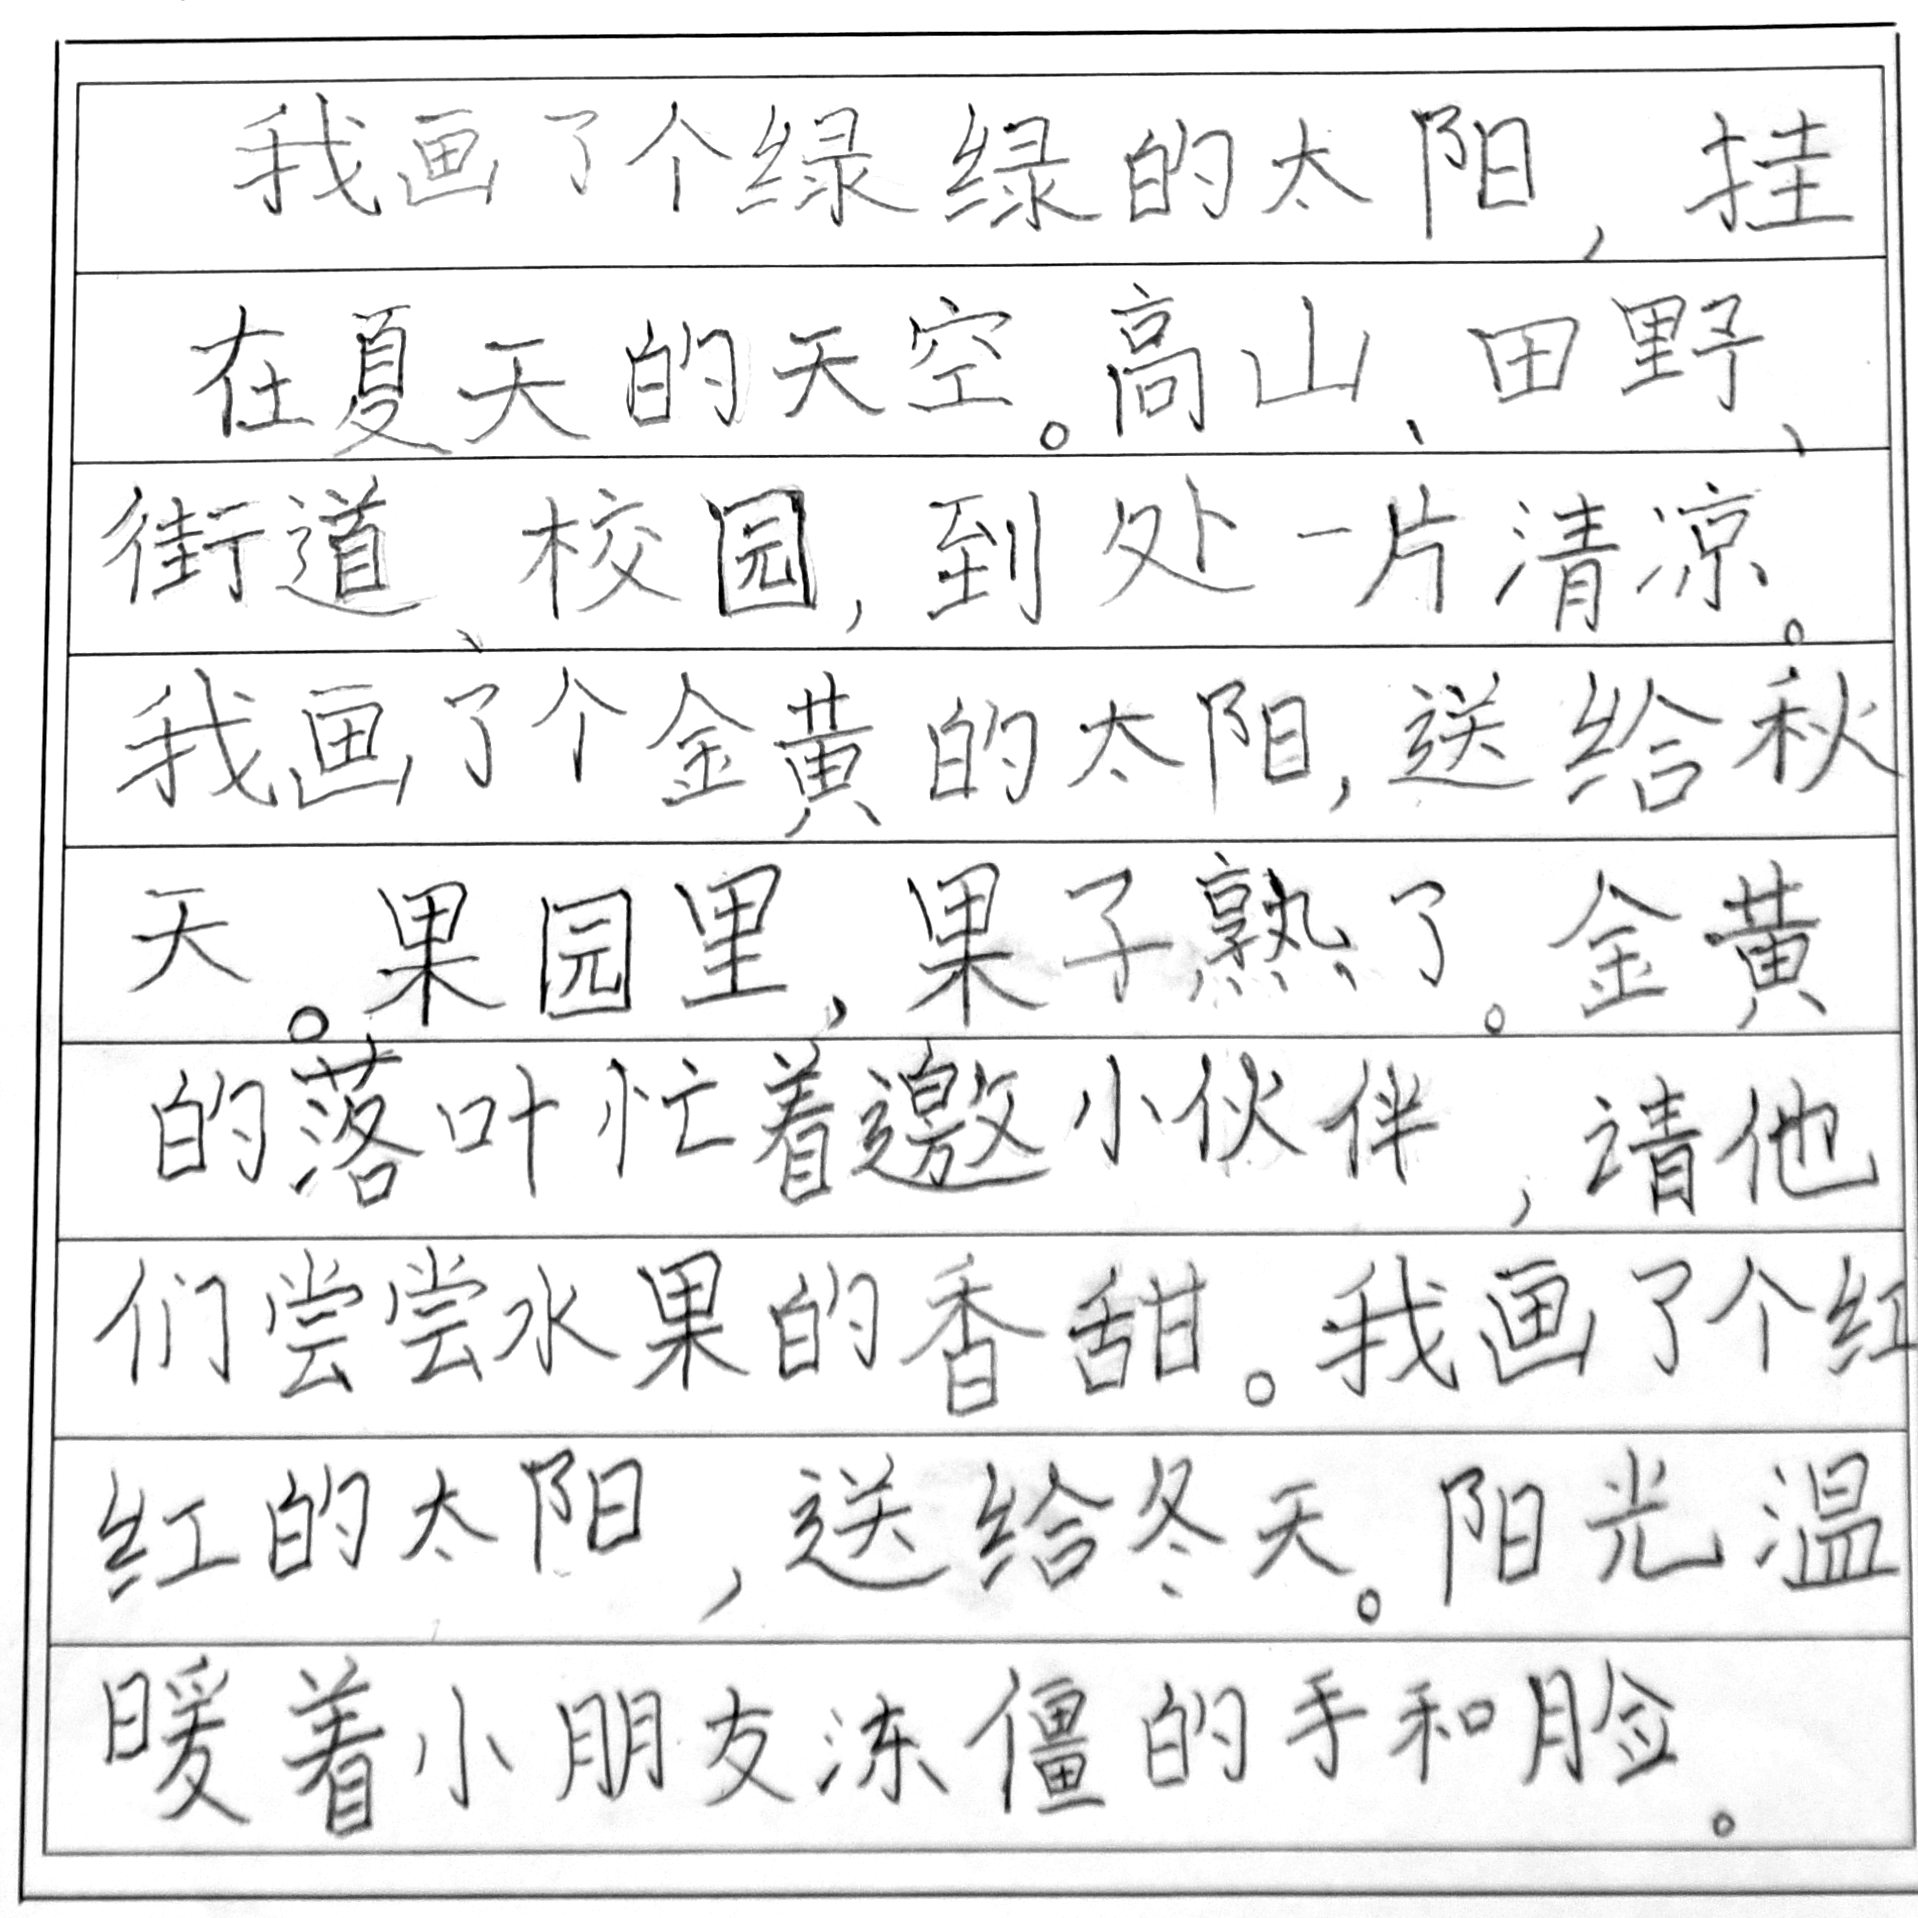 我画了个绿绿的太阳，挂
在夏天的天空。高山、田野、
街道、校园，到处一片清凉。
我画了个金黄的太阳，送给秋
天。果园里，果子熟了。金黄
的落叶忙着邀小伙伴，请他
们尝尝水果的香甜。我画了个红
红的太阳，送给冬天。阳光温
暖着小朋友冻僵的手和脸。